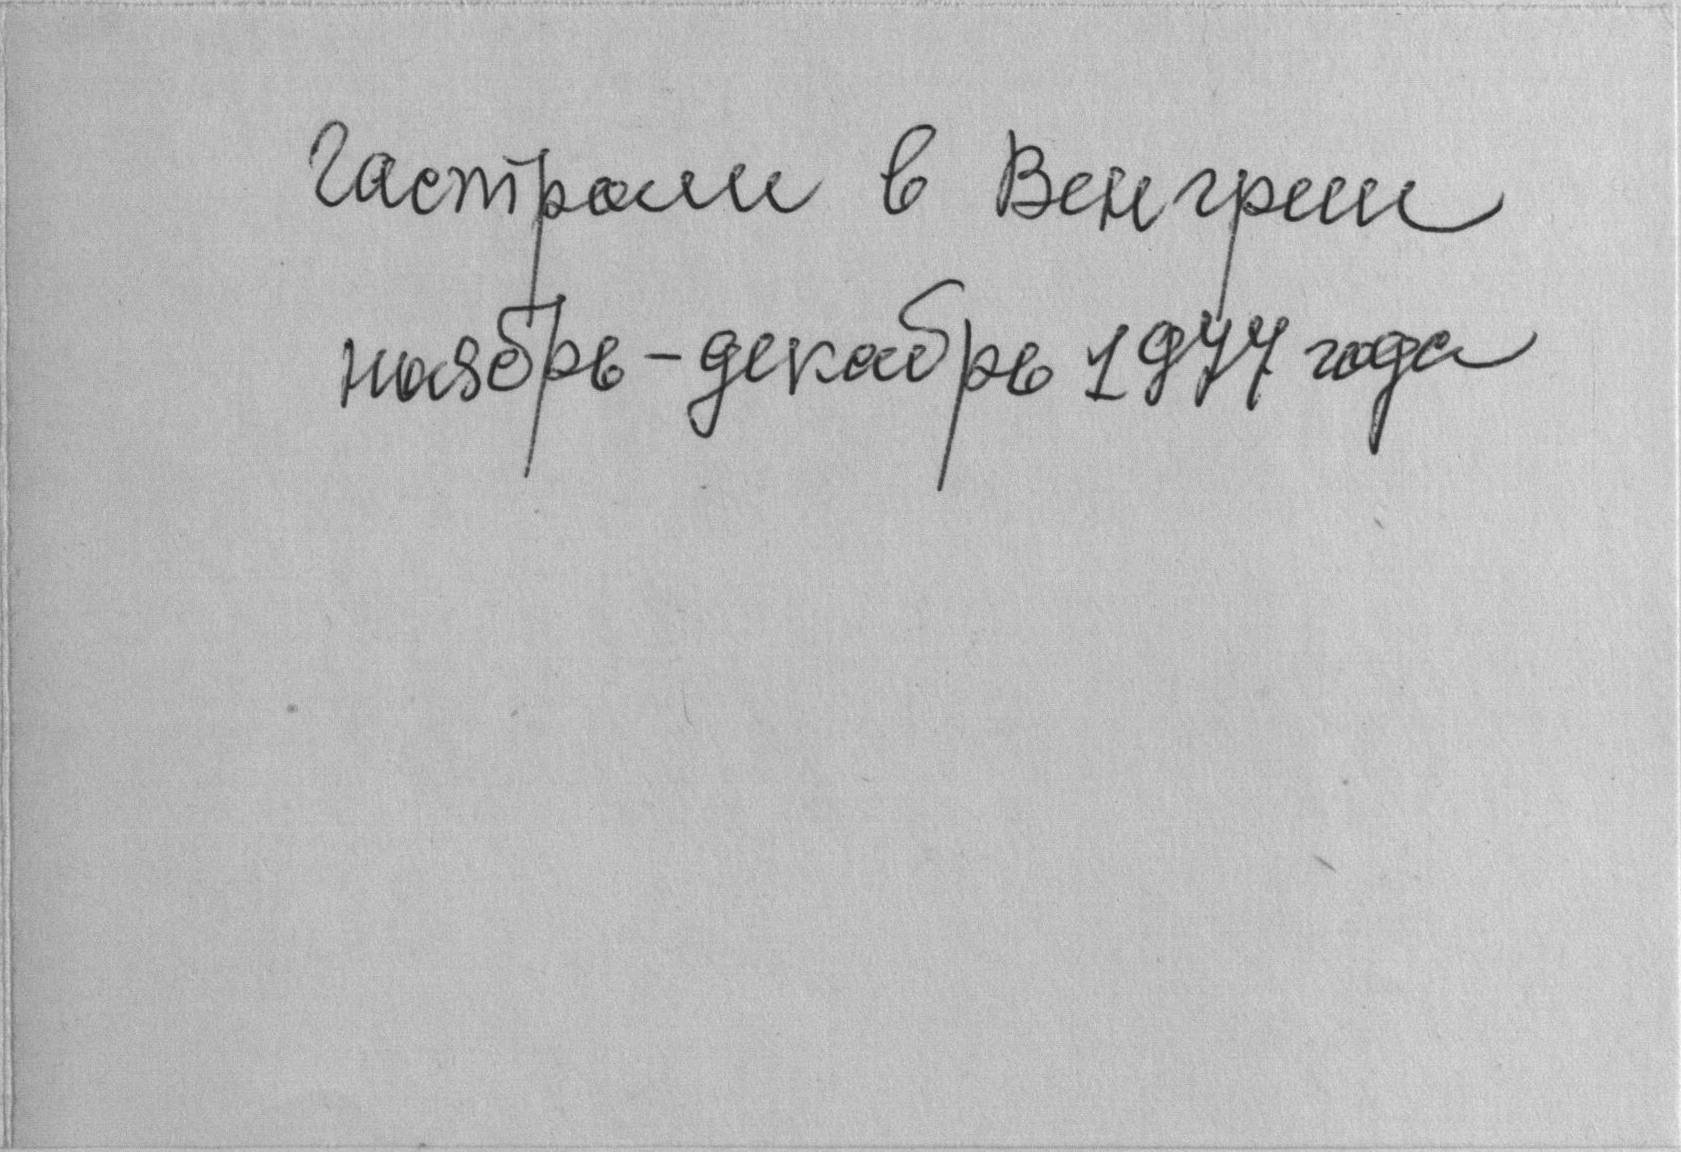 Гастроли в Венгрии
ноябрь-декабрь 1977 года